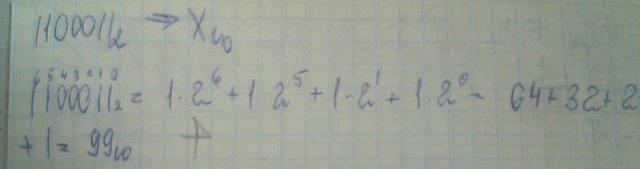 1100011₂ ⇒ X₁₀
6 5 4 3 2 1 0
1100011₂ = 1·2⁶ + 1 2⁵ + 1·2¹ + 1·2⁰ = 64+32+2
+ 1 = 99₁₀